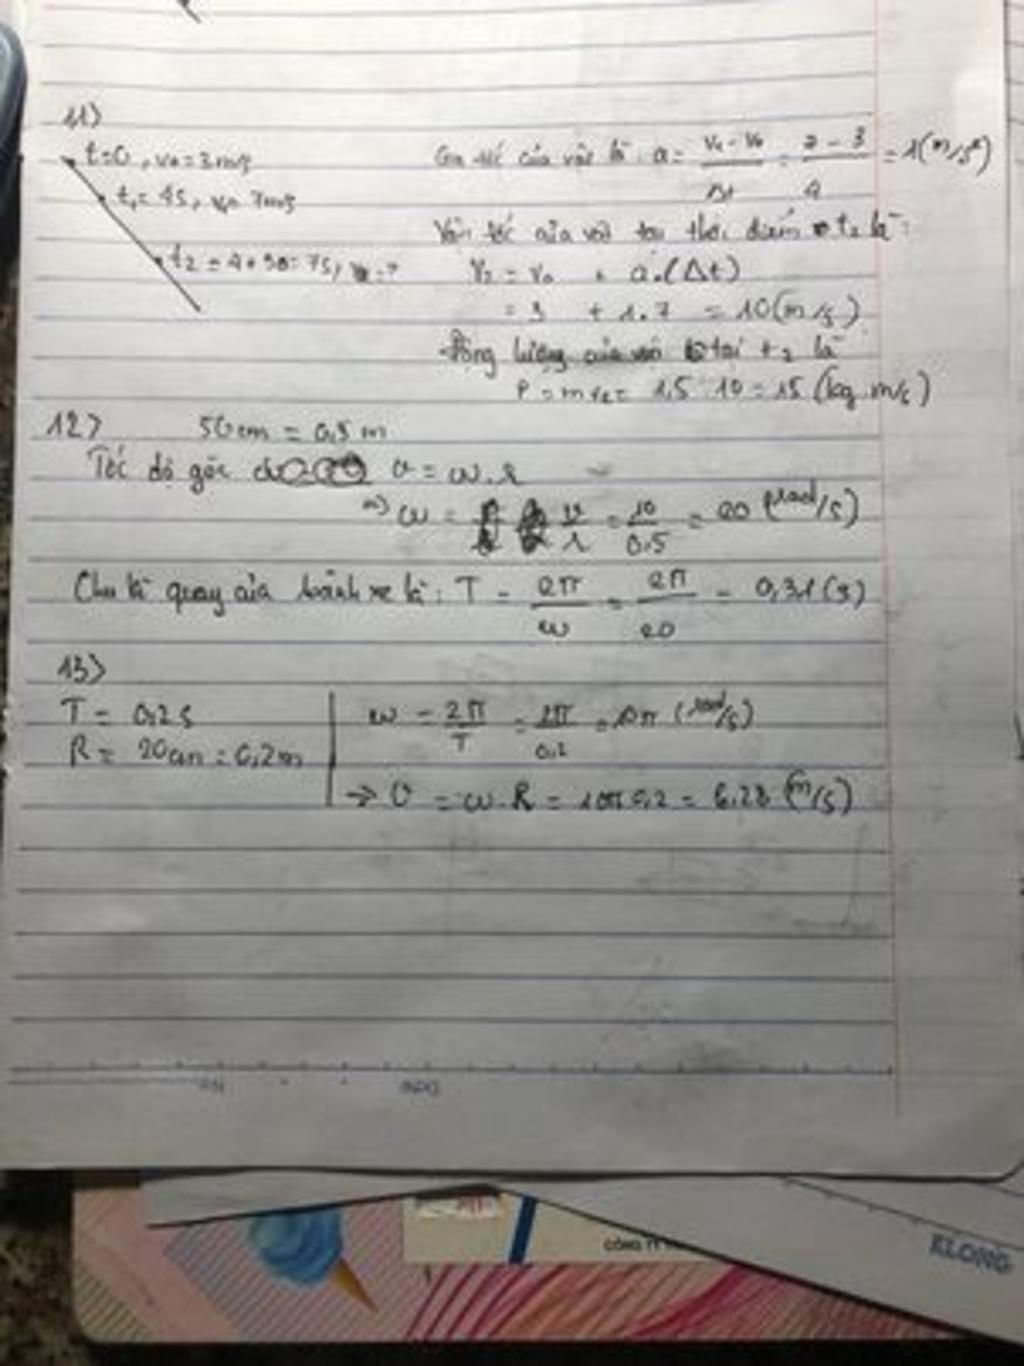 11>
t=0, v₀=3m/s
t₁= 4s, v₁= 7m/s
t₂ = 4+3s=7s, v₂=?
Gia tốc của vật là: a= (v₁-v₀)/Δt = (7-3)/4 = 1(m/s²)
Vận tốc của vật tại thời điểm t₂ là:
v₂ = v₀ + a.(Δt)
= 3 + 1.7 = 10(m/s)
Động lượng của vật tại t₂ là
P = mv₂= 1,5 . 10 = 15 (kg.m/s)
12>
50cm = 0,5m
Tốc độ góc v = ω.r
=> ω = v/r = 10/0.5 = 20 (rad/s)
Chu kì quay của bánh xe là: T = 2π/ω = 2π/20 = 0,31(s)
13>
T = 0,2s
R = 20cm = 0,2m
ω = 2π/T = 2π/0,2 = 10π (rad/s)
→ v = ω.R = 10π.0,2 = 6,28 (m/s)
CÔNG TY
KLONG